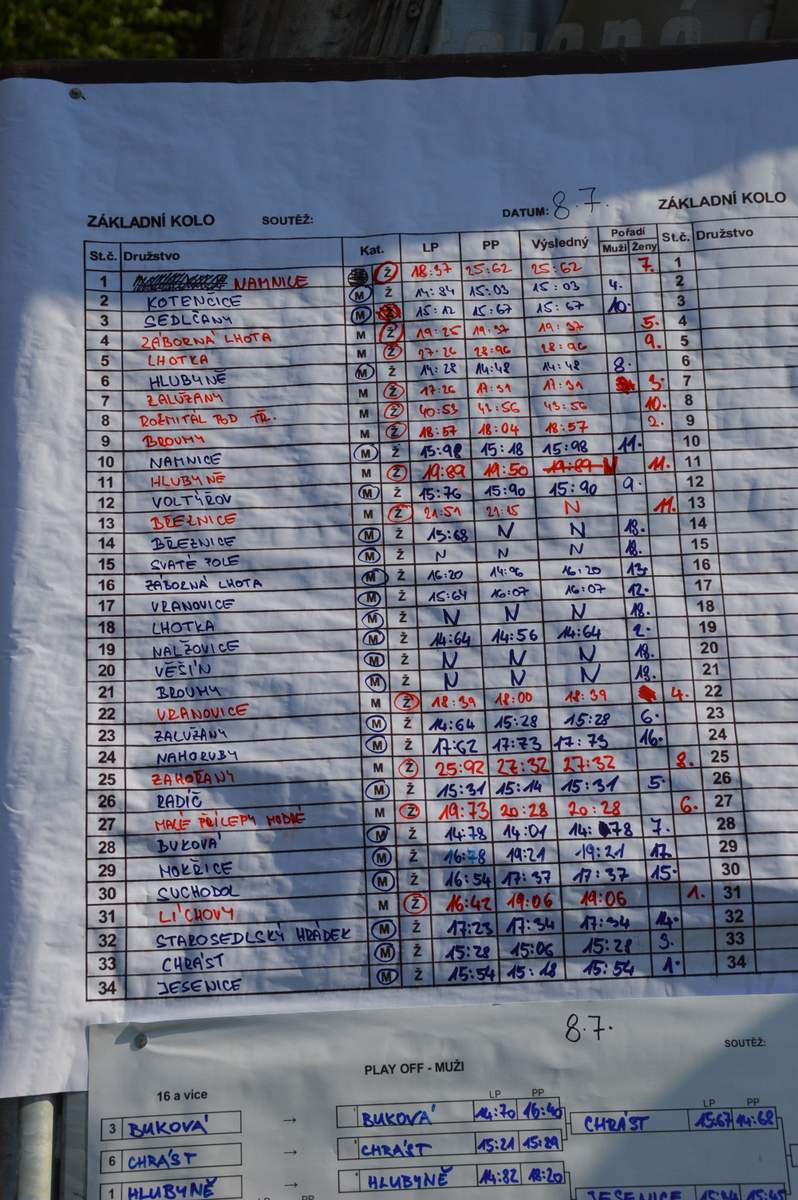 ZÁKLADNÍ KOLO SOUTĚŽ: DATUM: 8.7. ZÁKLADNÍ KOLO
St.č. Družstvo Kat. LP PP Výsledný Pořadí Muži Ženy St.č. Družstvo
1 NAMNICE Ž 18:37 25:62 25:62 7. 1
2 KOTENČICE M Ž 14:84 15:03 15:03 4. 2
3 SEDLČANY M 15:12 15:67 15:67 10. 3
4 ZÁBORNÁ LHOTA M Ž 19:25 19:37 19:37 5. 4
5 LHOTKA M Ž 27:26 28:96 28:96 9. 5
6 HLUBYNĚ M Ž 14:28 14:48 14:48 8. 6
7 ZALUŽANY M Ž 17:26 17:31 17:31 3. 7
8 ROŽMITÁL POD TŘ. M Ž 40:53 43:56 43:56 10. 8
9 BROUMY M Ž 18:57 18:04 18:57 2. 9
10 NAMNICE M Ž 15:98 15:18 15:98 11. 10
11 HLUBYNĚ M Ž 19:89 19:50 19:89 N 11. 11
12 VOLTÝŘOV M Ž 15:76 15:90 15:90 9. 12
13 BŘEZNICE M Ž 21:51 21:15 N 11. 13
14 BŘEZNICE M Ž 15:68 N N 18. 14
15 SVATÉ POLE M Ž N N N 18. 15
16 ZÁBORNÁ LHOTA M Ž 16:20 14:96 16:20 13. 16
17 VRANOVICE M Ž 15:64 16:07 16:07 12. 17
18 LHOTKA M Ž N N N 18. 18
19 NALŽOVICE M Ž 14:64 14:56 14:64 2. 19
20 VĚŠÍN M Ž N N N 18. 20
21 BROUMY M Ž N N N 18. 21
22 VRANOVICE M Ž 18:39 18:00 18:39 4. 22
23 ZALUŽANY M Ž 14:64 15:28 15:28 6. 23
24 NAHORUBY M Ž 17:62 17:73 17:73 16. 24
25 ZAHOŘANY M Ž 25:92 27:32 27:32 8. 25
26 RADÍČ M Ž 15:31 15:14 15:31 5. 26
27 MALÉ PŘÍLEPY MODRÉ M Ž 19:73 20:28 20:28 6. 27
28 BUKOVÁ M Ž 14:78 14:01 14:78 7. 28
29 MOKŘICE M Ž 16:78 19:21 19:21 17. 29
30 SUCHODOL M Ž 16:54 17:37 17:37 15. 30
31 LÍCHOVY M Ž 16:42 19:06 19:06 1. 31
32 STAROSEDLSKÝ HRÁDEK M Ž 17:23 17:34 17:34 14. 32
33 CHRÁST M Ž 15:28 15:06 15:28 3. 33
34 JESENICE M Ž 15:54 15:18 15:54 1. 34
8.7.
SOUTĚŽ:
PLAY OFF - MUŽI
16 a více LP PP LP PP
3 BUKOVÁ → BUKOVÁ 14:70 16:40 CHRÁST 15:67 14:68
6 CHRÁST → CHRÁST 15:21 15:29
1 HLUBYNĚ → HLUBYNĚ 14:82 18:20 JESENICE
LP PP